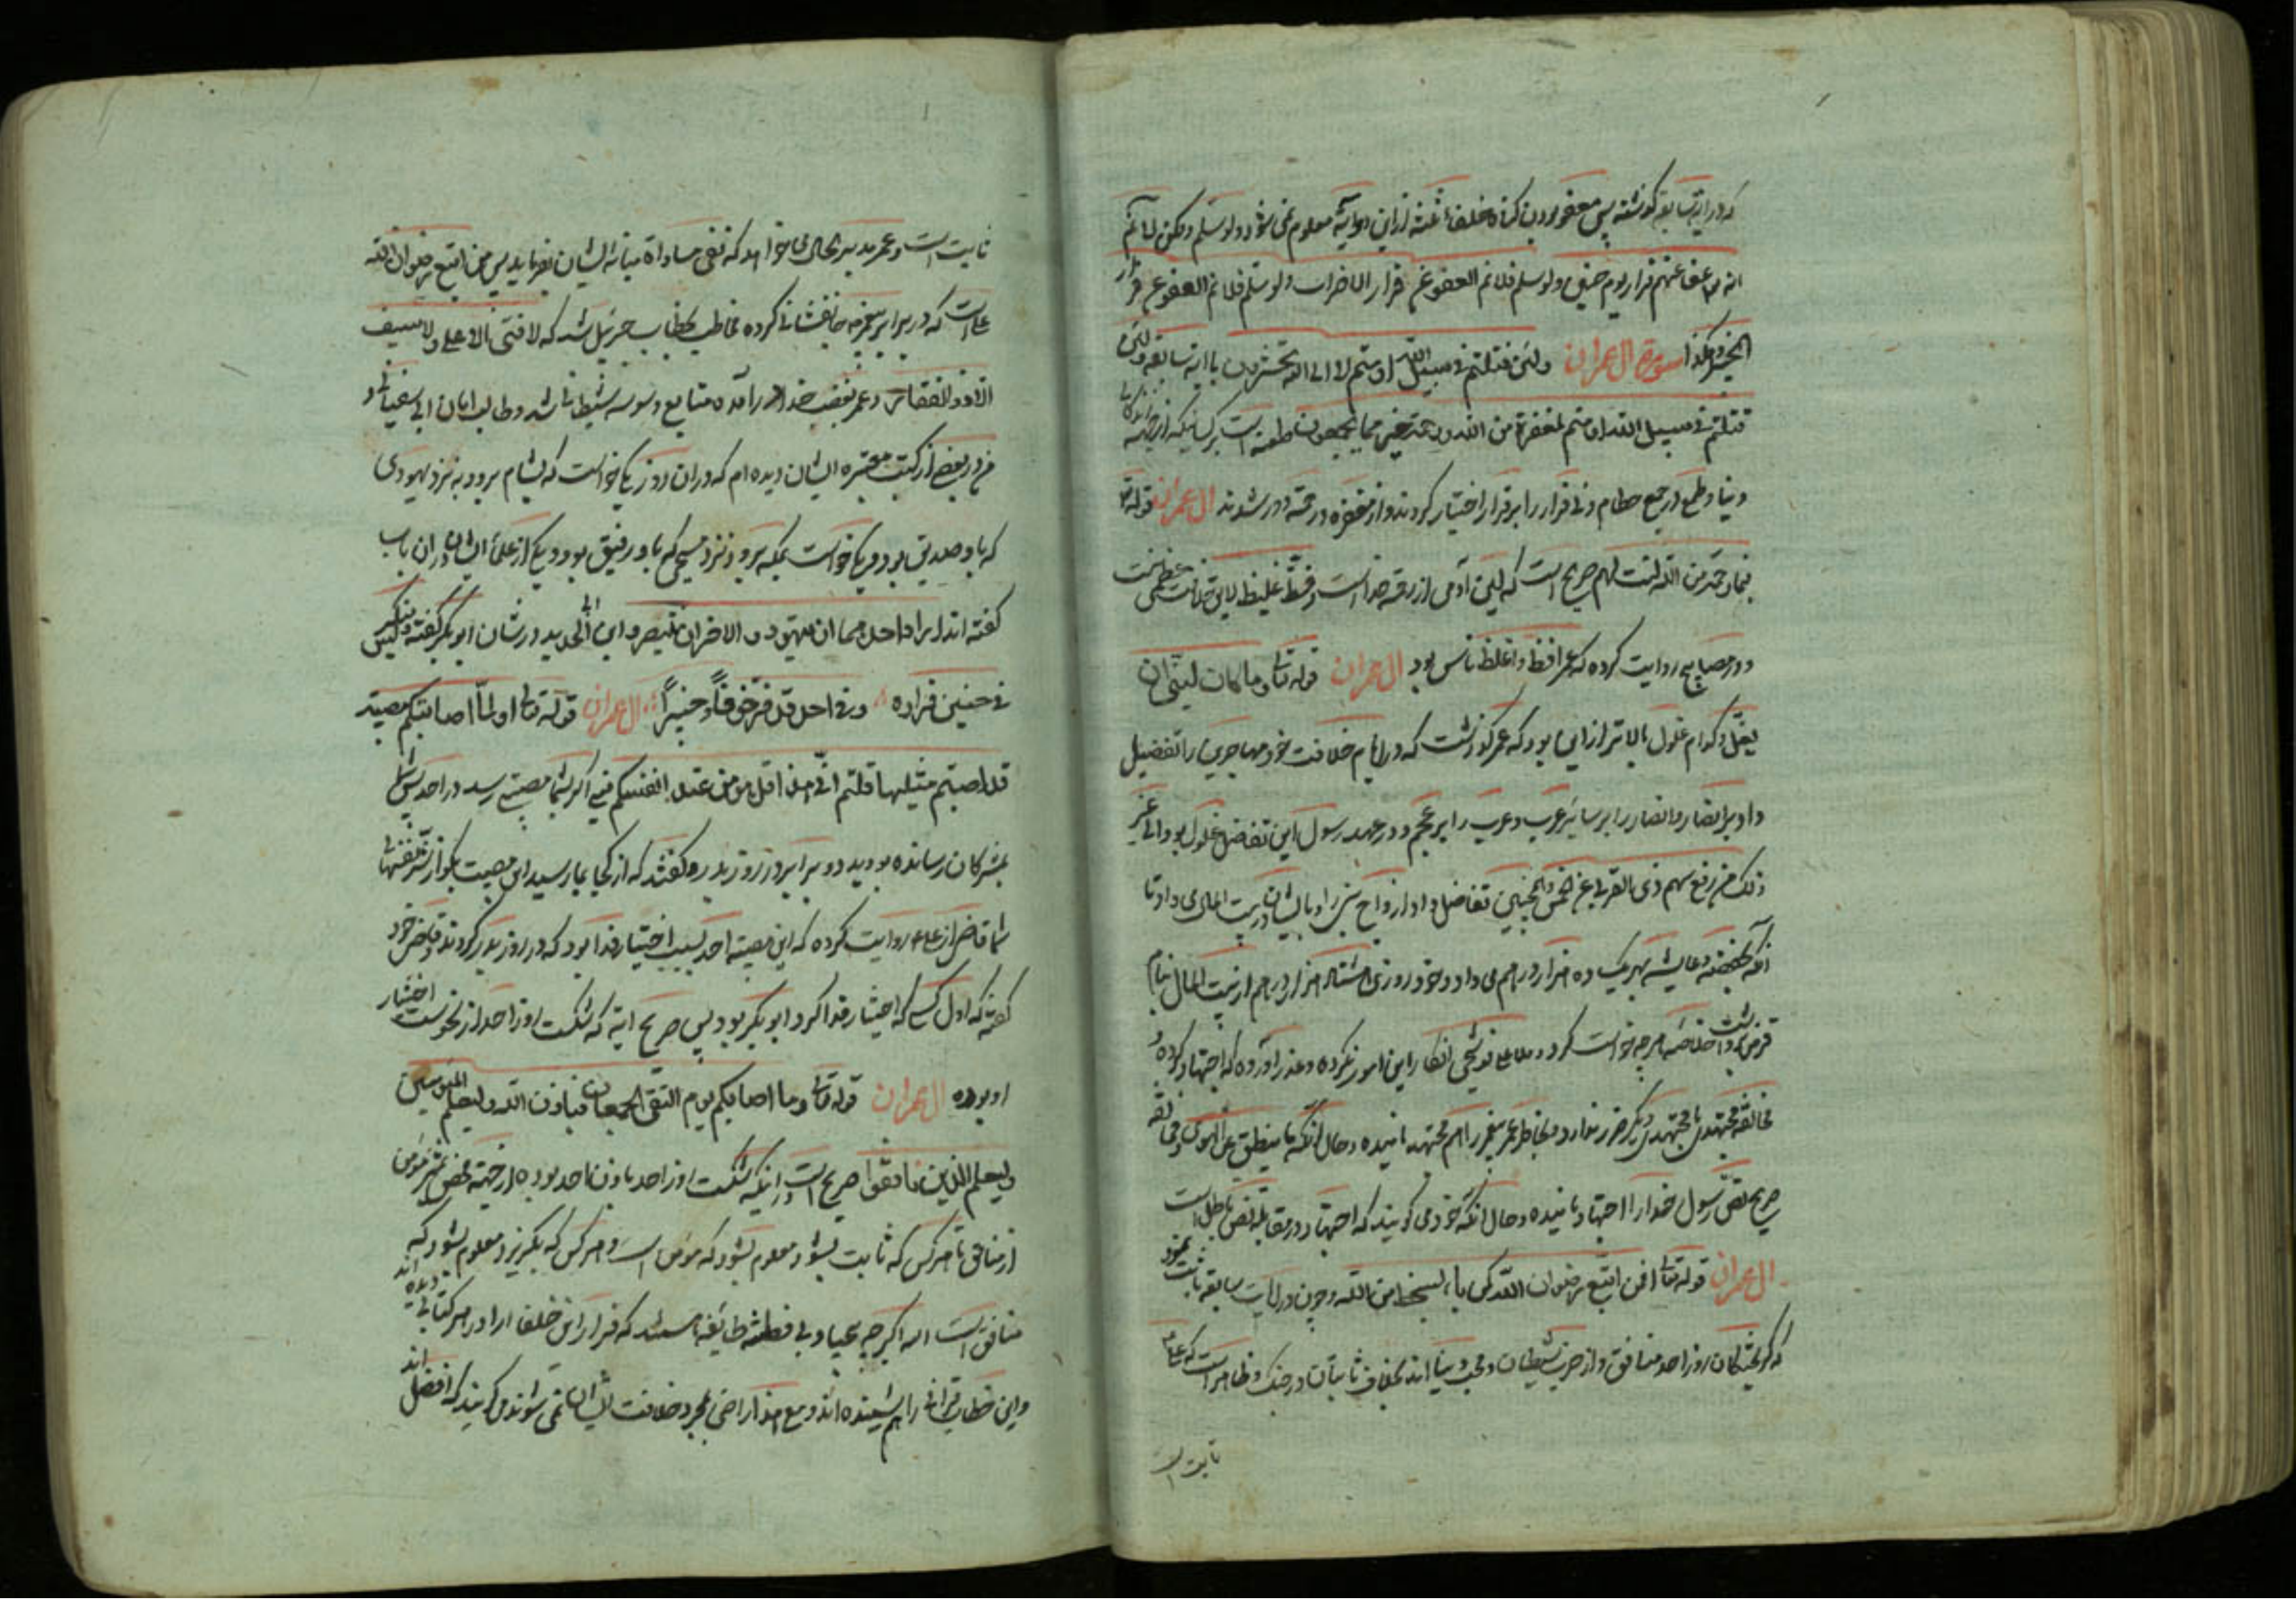 که در آیه سابقه گذشته پس معفو بودن گناه خلفاء ثلثه از این دو آیه معلوم نمی شود ولو سلم ولکن لا نم
انه عفا عنهم فرار یوم حنین ولو سلم فلا نم العفو عن فرار الاخرات ولو سلم فلا نم العفو عن فرار
الخیبر وهکذا سوره ال عمران ولئن قتلتم فی سبیل الله او متم لا الی الله تحشرون با آیه سابقه ولئن
قتلتم فی سبیل الله او متم لمغفرة من الله ورحمة خیر مما یجمعون طعنه است بر کسانیکه از جهة زندگانی
دنیا وطمع در جمع حطام دنی فرار را بر قرار اختیار کردند واز مغفره ورحمة دور شدند ال عمران قوله تع
فبما رحمة من الله لنت لهم صریح است که لین آدمی از رحمة خداست وفظ غلیظ لایق خلافت عظمی نیست
ودر مصابیح روایت کرده که عمر افظ واغلظ ناس بود ال عمران قوله تعالی وما کان لنبی ان
یغل وکدام غلول بالاتر از این بود که عمر گذاشت که در ایام خلافت خود مهاجرین را تفضیل
داد بر انصار وانصار را بر سایر عرب وعرب را بر عجم ودر عهد رسول این تفاضل غلول بود الی غیر
ذلک من رفع سهم ذی القربی عن الخمس والجنبین تفاضل داد ازواج نبی را وبایشان از بیت المال می داد تا
آنکه بحفصه وعایشه بهر یک ده هزار درهم می داد وخود روزی هشتاد هزار درهم از بیت المال بنام
قرض برداشت خلاصه هر چه خواست کرد وملا علی قوشجی انکار این امور نکرده وعذر آورده که اجتهاد کرده و
مخالفة مجتهدی با مجتهدی دیگر ضرر ندارد وبخاطر عمر پیغمبر را هم مجتهد نامیده وحال آنکه ما ینطق عن الهوی ومخالفة
صریح نص رسول خدا را اجتهاد نامیده وحال آنکه خود می گویند که اجتهاد در مقابله نص باطل است
ال عمران قوله تعالی افمن اتبع رضوان الله کمن باء بسخط من الله وچون در آیات سابقه ثابت نمود
که گریختگان روز احد منافق واز حزب شیطان ومحب دنیا اند بخلاف ثابتان در جنگ وظاهر است که علی ع
ثابت است
ثابت است وعمر مدبر بحالی می خواهد که نفی مساواة میانه ایشان بفرماید پس من اتبع رضوان الله
علی است که در برابر پیغمبر جانفشانی کرده مخاطب بخطاب جبرئیل شد که لا فتی الا علی ولا سیف
الا ذو الفقار وعمر بغضب خدا در آمده متابع وسوسه شیطانی شد وطالب امان ابی سفیانی و
من در بعضی از کتب معتبره ایشان دیده ام که در ان روز یکی خواست که بشام برود به نزد یهودی
که با او صدیق بود ویکی خواست بمکه برود نزد مسیحی که با او رفیق بود ویکی از علماء ایشان در ان باب
گفته اند ایراد احدهما ان یتهود والاخر ان یتنصر وابن ابی الحدید در شان ابو بکر گفته ولیس بنکر
فی حنین فراره وفی احد قد فر خوفا وخیبرا ال عمران قوله تعالی اولما اصابتکم مصیبة
قد اصبتم مثلیها قلتم انی هذا قل هو من عند انفسکم یعنی اگر بشما مصیبتی رسید در احد پس شما
بمشرکان رسانده بودید دو برابر در روز بدر گفتید که از کجا بما رسید این مصیبت بگو از نزد نفسهای
شما قاضی از علی ع روایت کرده که این مصیبة احد بسبب اختیار فدا بود که در روز بدر کردند وقاضی خود
گفته که اول کسی که اختیار فدا کرد ابو بکر بود پس صریح آیه که شکست روز احد از نحوست اختیار
او بوده ال عمران قوله تعالی وما اصابکم یوم التقی الجمعان فباذن الله ولیعلم المؤمنین
ولیعلم الذین نافقوا صریح است در اینکه شکست روز احد باذن خدا بوده از جهة محض تمیز مؤمن
از منافق تا هر کس که ثابت بشود معلوم بشود که مؤمن است وهر کس که بگریزد معلوم بشود که
منافق است اما اگر چه بیحیا وبی فطنه طایفه هستند که فرار این خلفا را در هر کتابی دیده اند
واین خطاب قرانی را هم شنیده اند ومع هذا راضی بمجرد خلافت ایشان نمی شوند ومی گویند که افضل اند